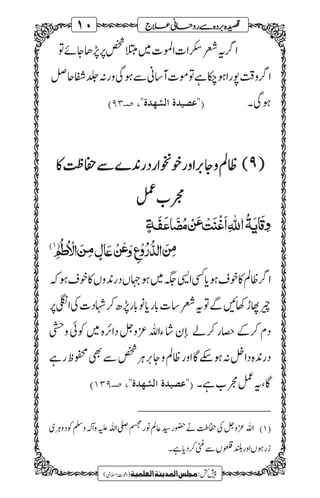 قصیدہ بردہ سے روحانی علاج ١٠
اگر یہ شعر سکرات الموت میں مبتلا شخص پر پڑھا جائے تو
اگر وقت پورا ہو چکا ہے تو موت آسانی سے ہو گی ورنہ جلد شفا حاصل
ہو گی۔ ("عصیدۃ الشھدۃ"، صـ٩٣)
(٩) ظالم و جابر اور خونخوار درندے سے حفاظت کا
مجرب عمل
وِقَايَةُ اللهِ اَغْنَتْ عَنْ مُّضَاعَفَةٍ
مِنَ الدُّرُوْعِ وَعَنْ عَالٍ مِنَ الْاُطُمِ(١)
اگر ظالم کا خوف ہو یا کسی ایسی جگہ ہو جہاں درندوں کا خوف ہو کہ
چیر پھاڑ کھائیں گے تو یہ شعر سات بار یا نو بار پڑھ کر شہادت کی انگلی پر
دم کر کے حصار کر لے اِنْ شاءاللہ عزوجل دائرہ میں کوئی وحشی
درندہ داخل نہ ہو سکے گا اور ظالم و جابر ہر شخص سے بھی محفوظ رہے
گا، یہ عمل مجرب ہے۔ ("عصیدۃ الشھدۃ"، صـ١٣٩)
(١) اللہ عزوجل کی حفاظت نے حضور سید عالم نور مجسم صلی اللہ علیہ وآلہ وسلم کو دوہری
زرہوں اور بلند قلعوں سے غنی کر دیا ہے۔
پیش کش: مجلس المدینۃ العلمیۃ (دعوت اسلامی)